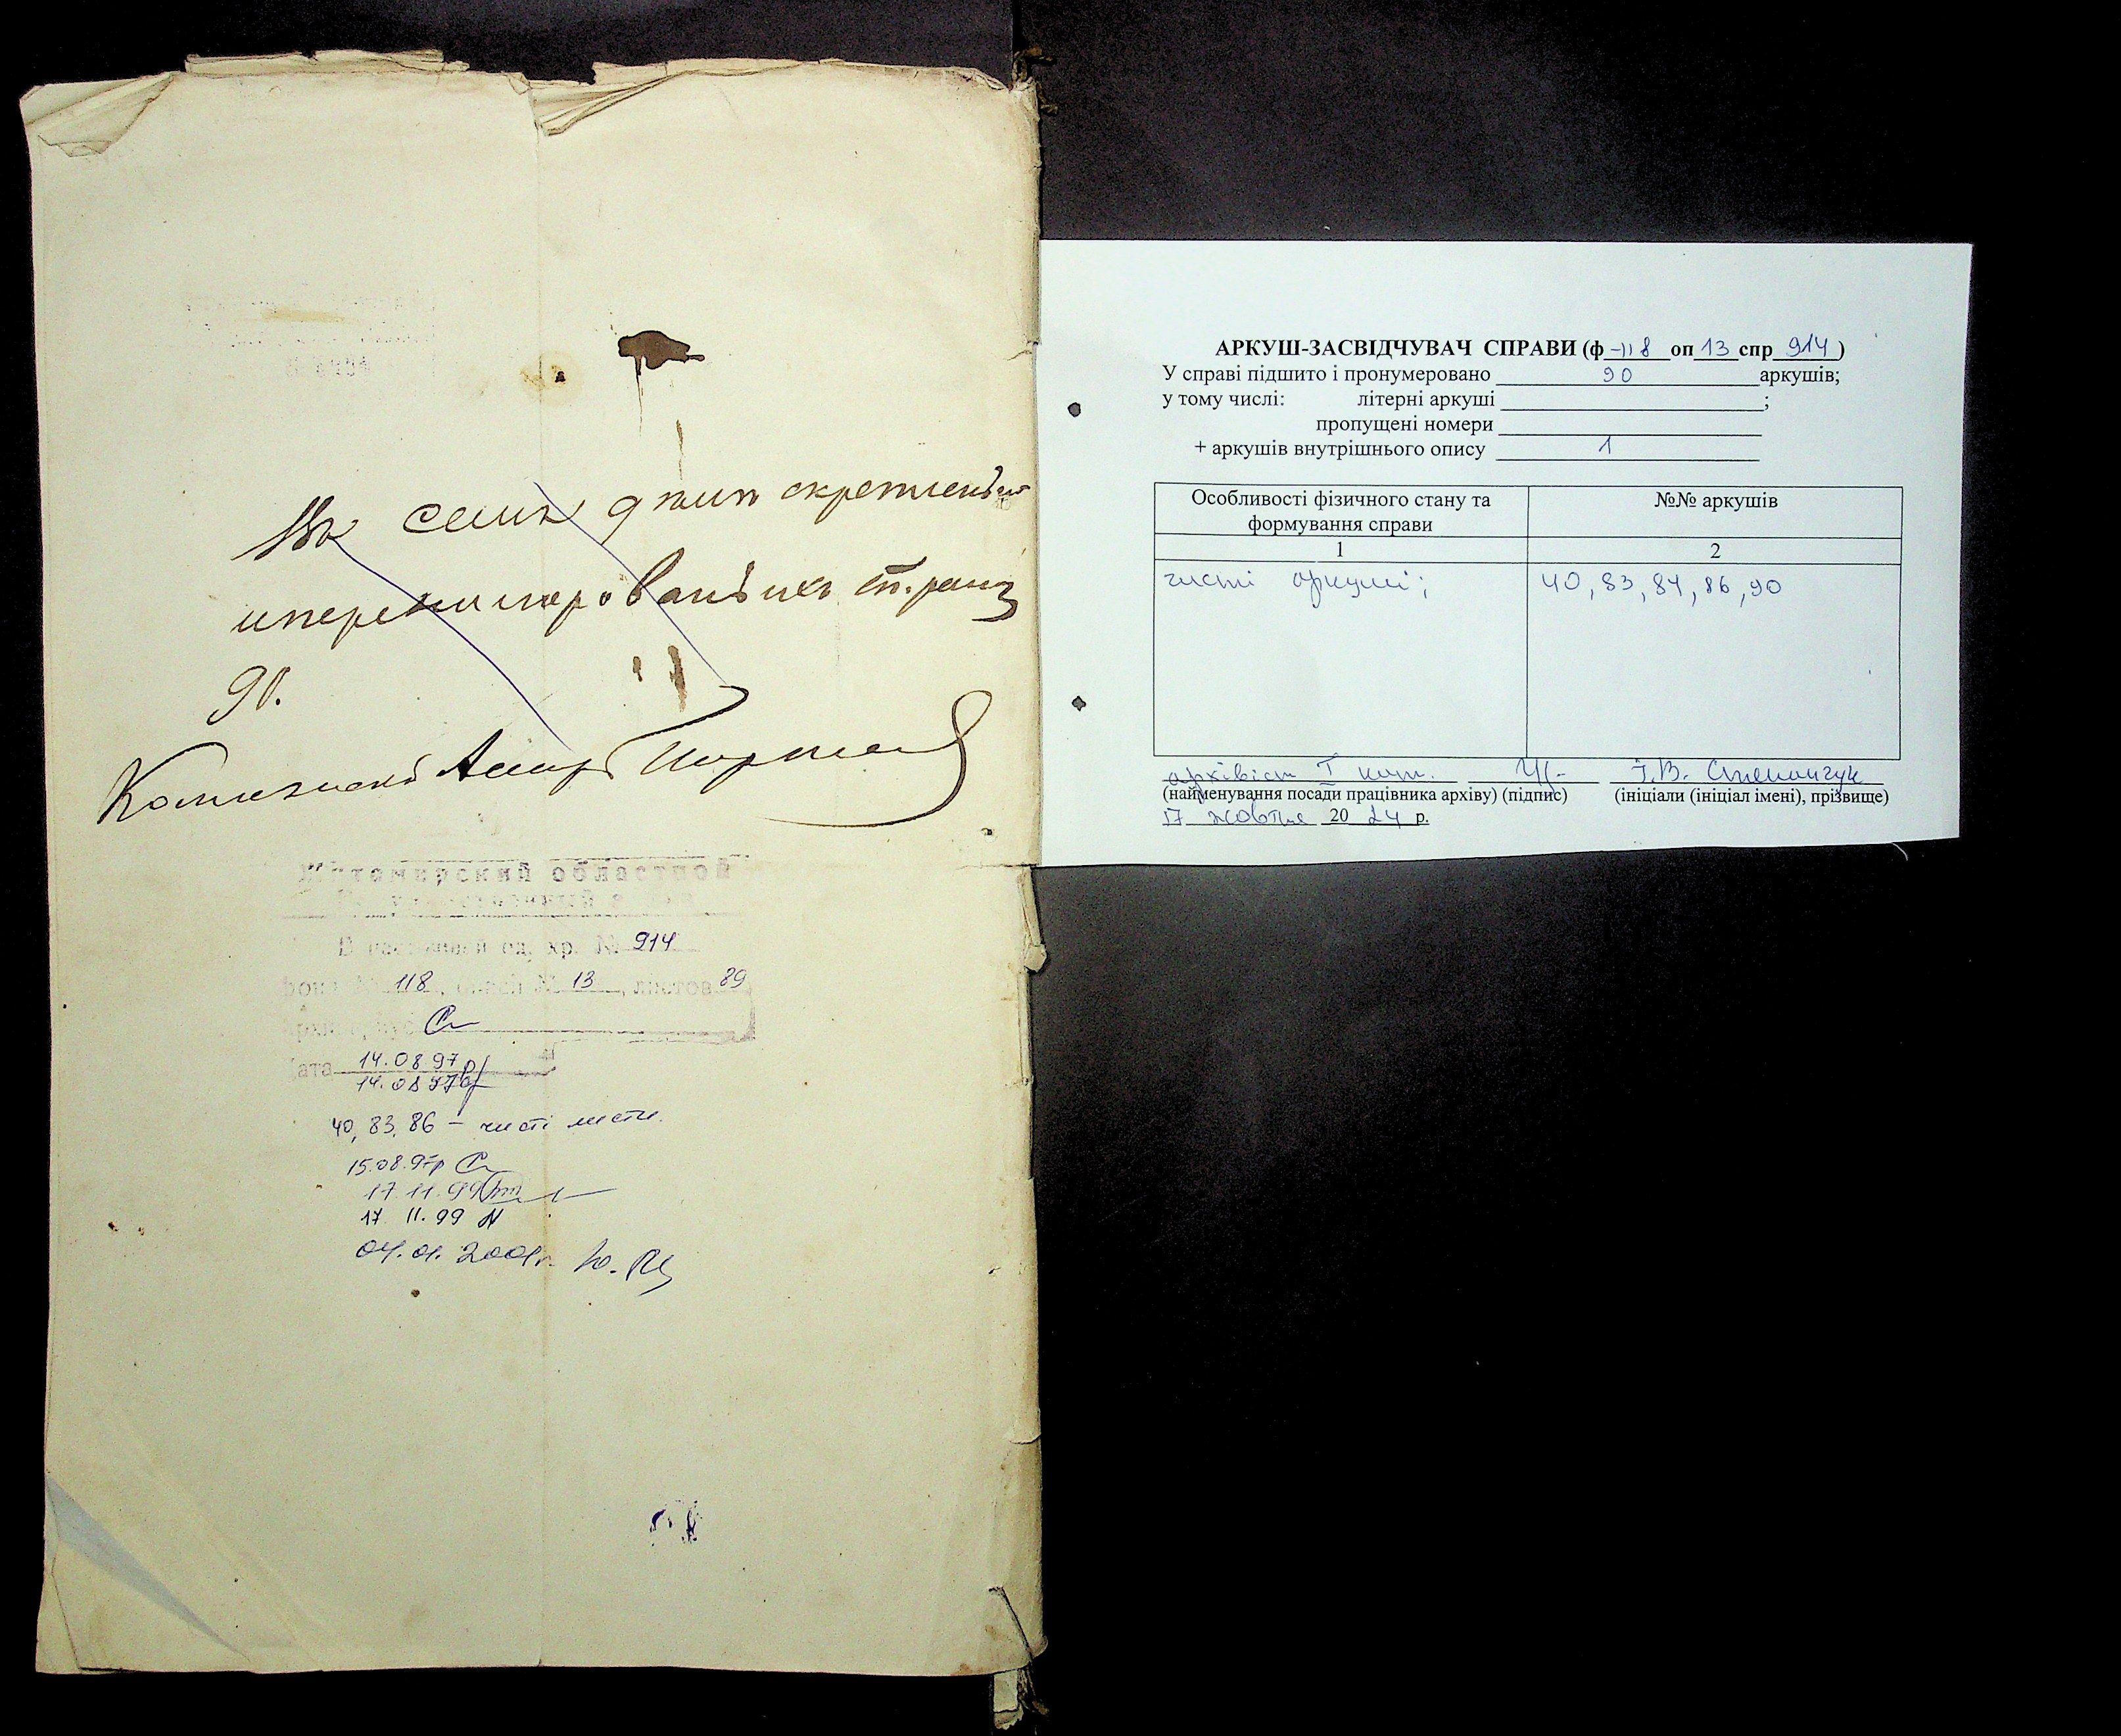 Въ семъ дѣлѣ скрепленныхъ
и перенумерованныхъ страниц
90.
Житомирский областной
В настоящей ед. хр. № 914
фонд № 118, описи № 13, листов 89
Дата 14.08.97р
14.08.97р
40, 83, 86 – чисті листи.
15.08.97р
17.11.99
17.11.99
04.01.2001р.
АРКУШ-ЗАСВІДЧУВАЧ СПРАВИ (ф 118 оп 13 спр 914)
У справі підшито і пронумеровано 90 аркушів;
у тому числі: літерні аркуші ;
пропущені номери
+ аркушів внутрішнього опису 1
Особливості фізичного стану та формування справи
№№ аркушів
1
2
чисті аркуші;
40, 83, 84, 86, 90
архівіст I кат. І.В. Степанчук
(найменування посади працівника архіву) (підпис) (ініціали (ініціал імені), прізвище)
17 жовтня 2024 р.